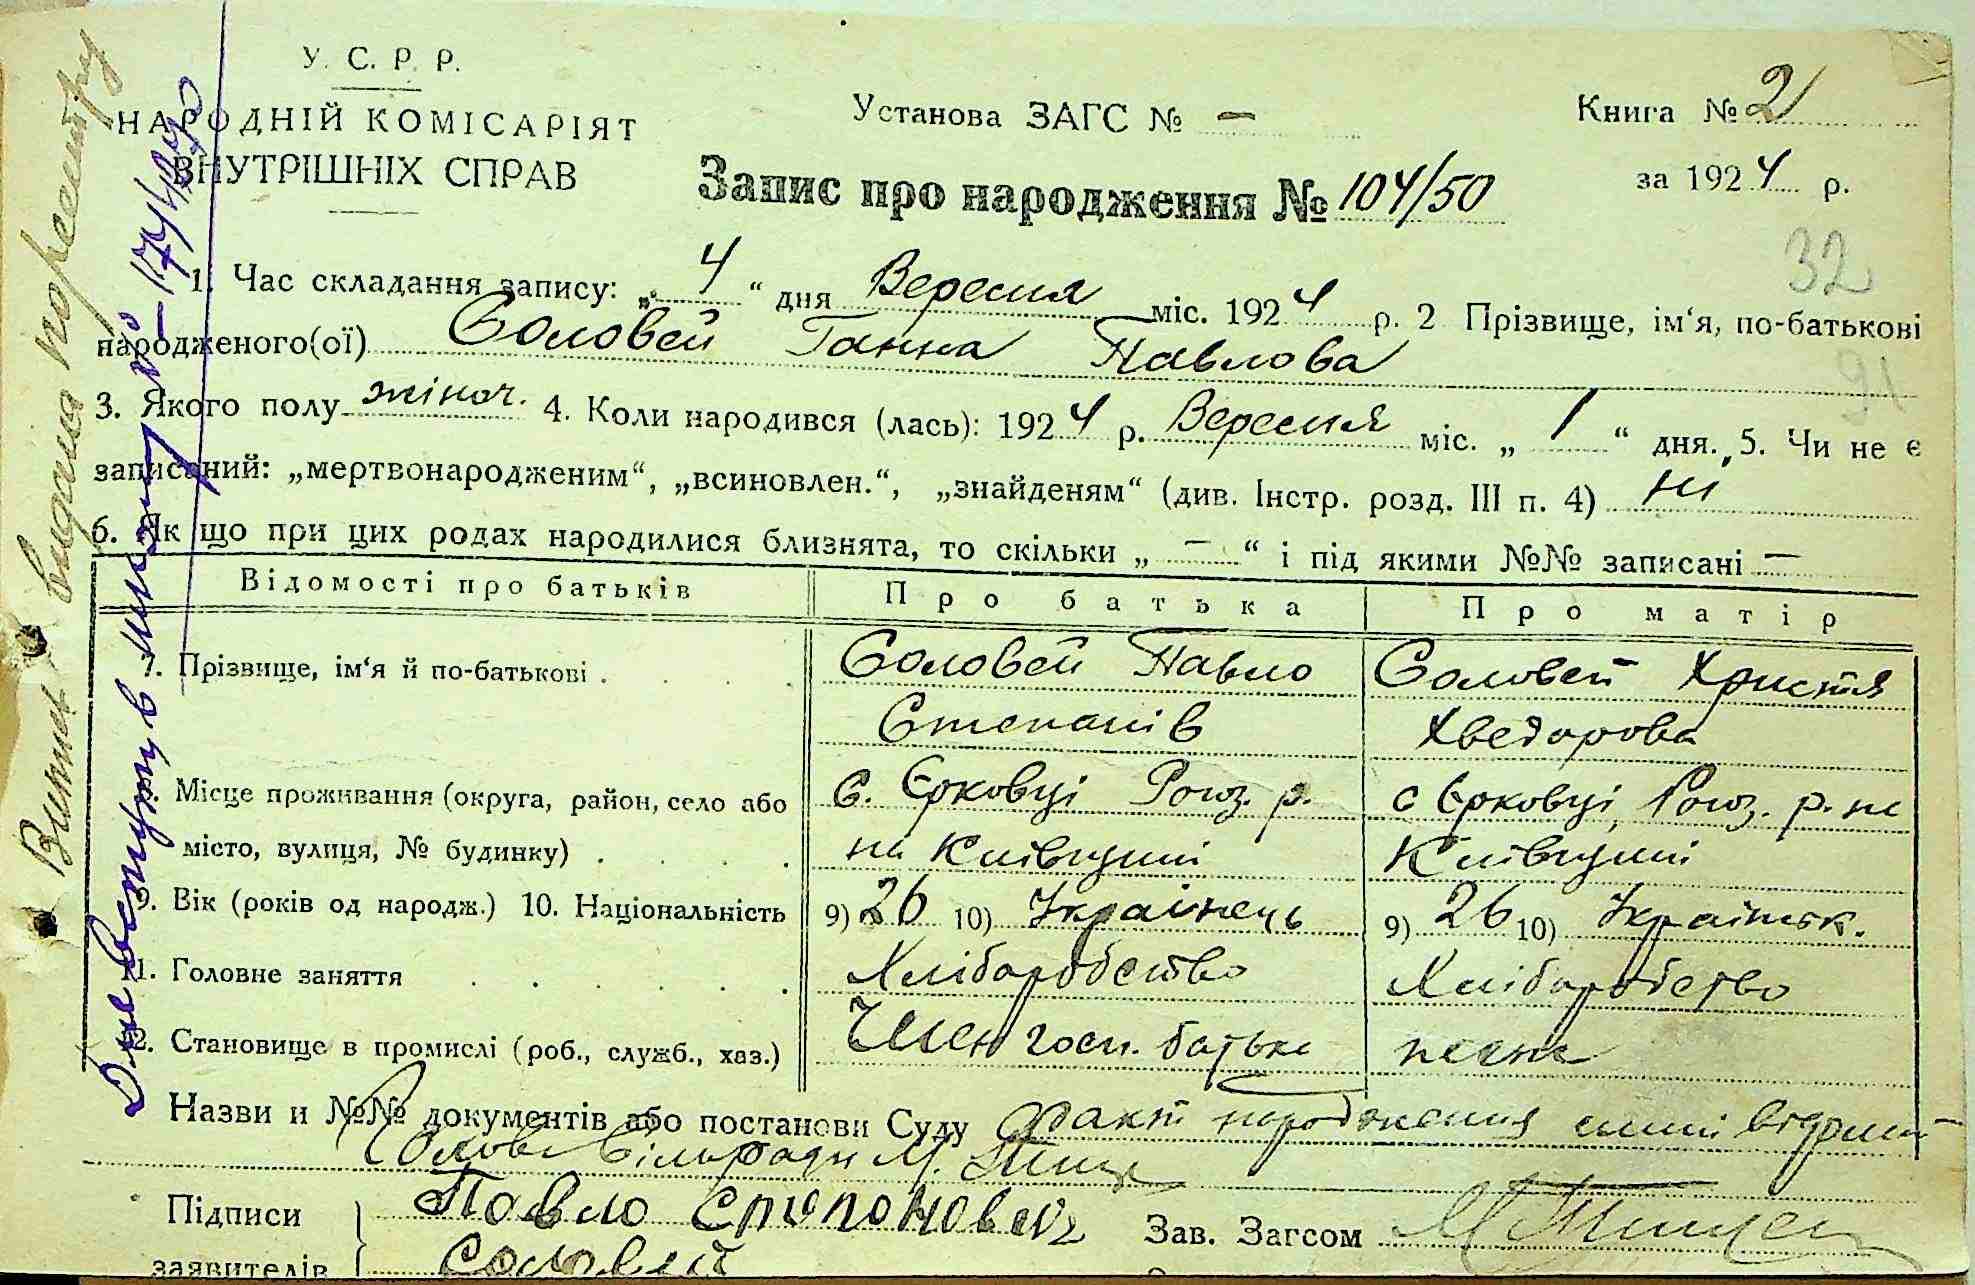 У. С. Р. Р.
НАРОДНІЙ КОМІСАРІЯТ
ВНУТРІШНІХ СПРАВ
Установа ЗАГС № —
Книга № 2
Запис про народження № 104/50
за 1924 р.
32
1. Час складання запису: „ 4 “ дня Вересня міс. 1924 р. 2 Прізвище, ім‘я, по-батькові
народженого(ої) Соловей Ганна Павлова
91
3. Якого полу жіноч. 4. Коли народився (лась): 1924 р. Вересня міс. „ 1 “ дня. 5. Чи не є
записаний: „мертвонародженим“, „всиновлен.“, „знайденям“ (див. Інстр. розд. III п. 4) ні
6. Як що при цих родах народилися близнята, то скільки „ — “ і під якими №№ записані —
Відомості про батьків Про батька Про матір
7. Прізвище, ім‘я й по-батькові . Соловей Павло Соловей Христя
Степанів Хведорова
Місце проживання (округа, район, село або с. Єрковці Рогоз. р. с Єрковці, Рогоз. р. на
місто, вулиця, № будинку) . на Київщині Київщині
9. Вік (років од народж.) 10. Національність 9) 26 10) Українець 9) 26 10) Українськ.
11. Головне заняття Хліборобство Хліборобство
12. Становище в промислі (роб., служб., хаз.) Член госп. батька
Назви и №№ документів або постанови Суду Факт народження мині відомий
Голова Сільради М.
Підписи Павло Зав. Загсом М
заявителів Соловей
видана по реєстру